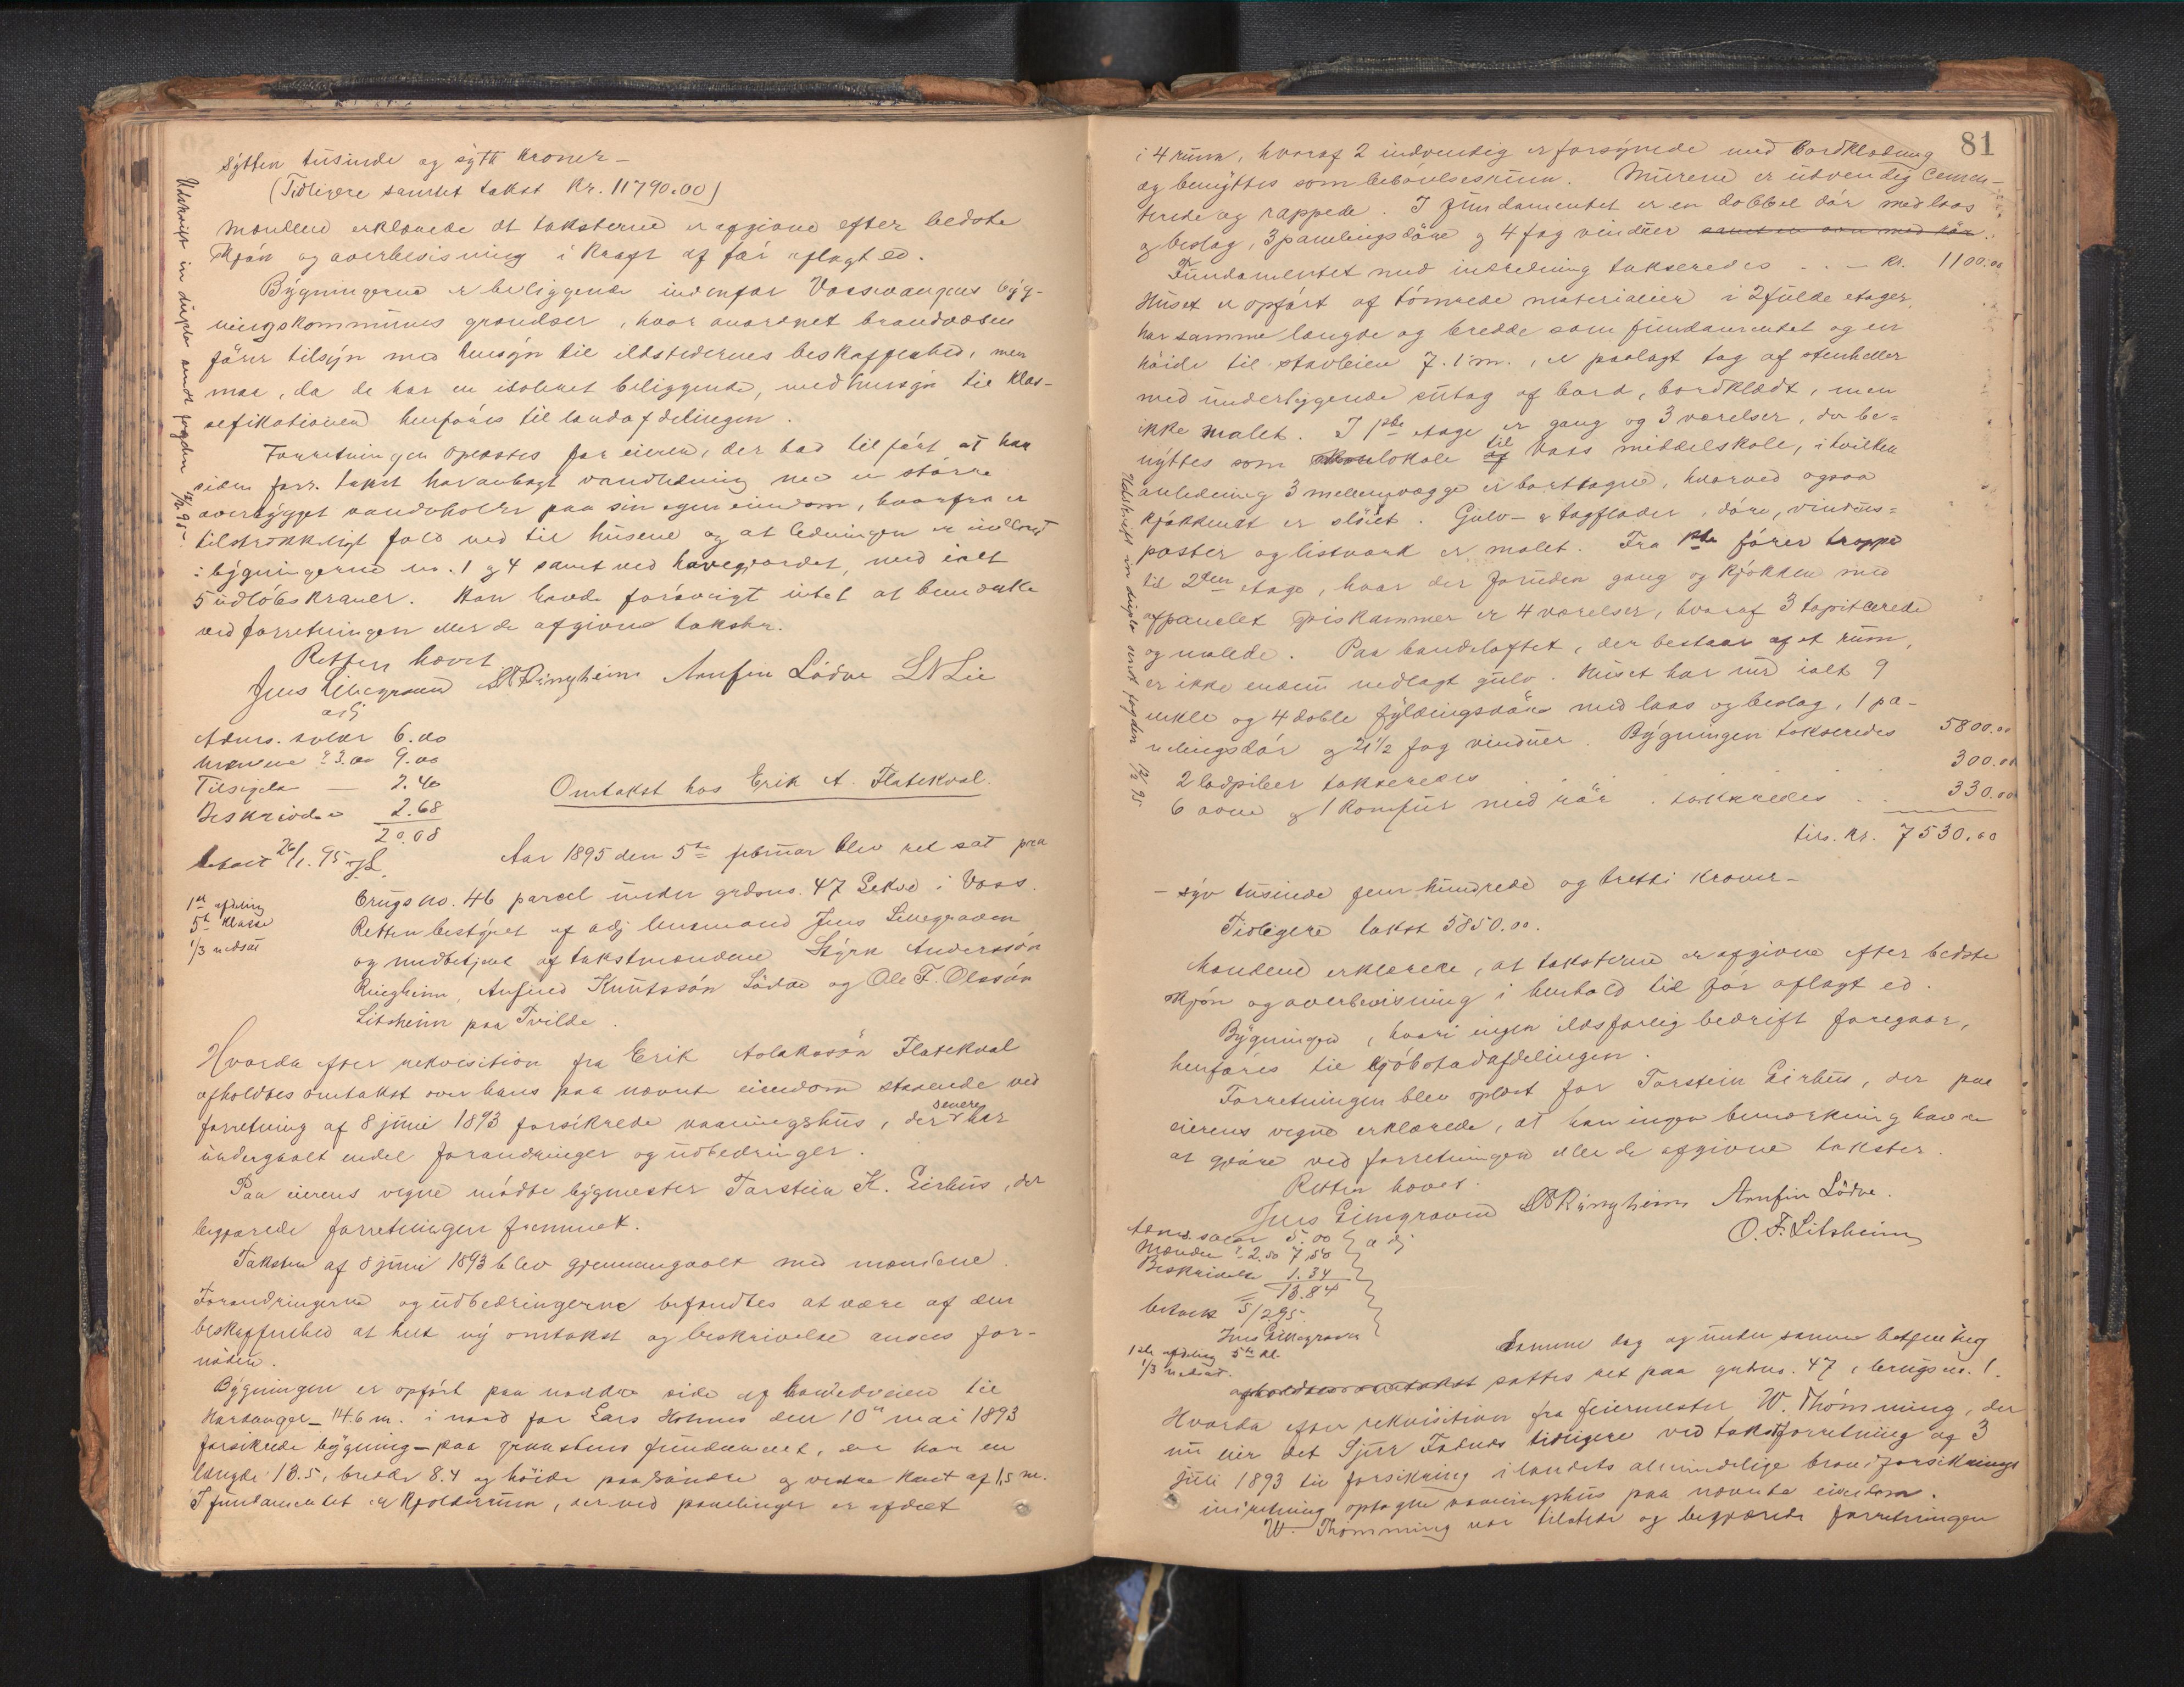 sytten tusinde og sytti kroner –
(Tidligere samlet takst Kr. 11790.00)
Mændene erklærede at taksterne er afgivne efter bedste
skjøn og overbevisning i kraft af før aflagt ed.
Bygningerne er beliggende indenfor Vossevangens byg-
ningskommunes grændser, hvor anordnet brandvæsen
fører tilsyn med hensyn til ildstedernes beskaffenhed, men
maa, da de har en isoleret beliggende, med hensyn til klas-
sefikationen henføres til landafdelingen.
Forretningen oplæstes for eieren, der bad tilført at han
siden forr. takst har anlagt vandledning med en større
overbygget vandbeholder paa sin egen eiendom, hvorfra er
tilstrækkeligt fald ned til husene og at ledningen er indlagt
i bygningerne no. 1 og 4 samt ved havegjærdet, med ialt
5 udløbskraner. Han havde forøvrigt intet at bemærke
ved forretningen eller de afgivne takster.
Retten hævet
Jens Lillegraven SA Ringheim Arnfin Lödve L N Lie
adj
Adms. salær 6.00
Mændene à 3.00 9.00
Tilsigelse — 2.40
Beskrivelse 2.68
20.08
betalt 26/1. 95 JL.
Udskrift in duplo sendt fogden 12/2 95 –
Omtakst hos Erik A. Flatekval.
Aar 1895 den 5te februar blev ret sat paa
brugsno. 46 parcel under grdsno. 47 Lekve i Voss.
Retten bestyret af adj lensmand Jens Lillegraven
og medbetjent af takstmændene Styrk Anderssøn
Ringheim, Anfind Knutssøn Lödve og Ole F. Olssøn
Litsheim paa Tvilde.
1ste afdeling
5te klasse
1/3 nedsat
Hvorda efter rekvisition fra Erik Aslakssøn Flatekval
afholdtes omtakst over hans paa nævnte eiendom staaende ved
forretning af 8 juni 1893 forsikrede vaaningshus, der senere har
undergaaet endel forandringer og udbedringer.
Paa eierens vegne mødte bygmester Torstein K. Eirhus, der
begjærede forretningen fremmet.
Taksten af 8 juni 1893 blev gjennemgaaet med mændene.
Forandringerne og udbedringerne befandtes at være af den
beskaffenhed at helt ny omtakst og beskrivelse ansees for-
nøden.
Bygningen er opført paa nordre side af hovedveien til
Hardanger – 14.6 m. i nord for Lars Holmes den 10de mai 1893
forsikrede bygning – paa graastens fundament, der har en
længde 13.5, bredde 8.4 og høide paa søndre og vestre kant af 1,5 m.
I fundamentet er kjelderrum, der ved panelinger er afdelt
81
i 4 rum, hvoraf 2 indvendig er forsynede med bordklædning
og benyttes som beboelsesrum. Murene er udvendig cemen-
terede og rappede. I fundamentet er en dobbel dør med laas
og beslag, 3 panelingsdøre og 4 fag vinduer samt en ovn med rør.
Fundamentet med indredning takseredes . . – Kr. 1100.00
Huset er opført af tømrede materialier i 2 fulde etager,
har samme længde og bredde som fundamentet og en
høide til stavleien 7.1 m., er paalagt tag af stenheller
med underliggende sutag af bord, bordklædt, men
ikke malet. I 1ste etage er gang og 3 værelser, der be-
nyttes som lokale til Voss middelskole, i hvilken
anledning 3 mellemvægge er borttagne, hvorved ogsaa
kjøkkenet er sløiet. Gulv- & tagflader, døre, vindus-
poster og listværk er malet. Fra 1ste fører trappe
til 2den etage, hvor der foruden gang og kjøkken med
afpanelet spiskammer er 4 værelser, hvoraf 3 tapitserede
og malede. Paa bandeloftet, der bestaar af et rum,
er ikke endnu nedlagt gulv. Huset har nu ialt 9
enkle og 4 doble fyldingsdøre med laas og beslag, 1 pa-
nelingsdør og 21 1/2 fag vinduer. Bygningen takseredes 5800.00
2 ladpiber takseredes . . . 300.00
6 ovne og 1 komfur med rør . takseredes . . 330.00
tils. Kr. 7530.00
Udskrift in duplo sendt fogden 12/2 95
– syv tusinde fem hundrede og tretti kroner –
Tidligere takst 5850.00.
Mændene erklærede, at taksterne er afgivne efter bedste
skjøn og overbevisning i henhold til før aflagt ed.
Bygningen, hvori ingen ildsfarlig bedrift foregaar,
henføres til kjøbstadafdelingen.
Forretningen blev oplæst for Torstein Eirhus, der paa
eierens vegne erklærede, at han ingen bemærkning havde
at gjøre ved forretningen eller de afgivne takster.
Retten hævet.
Jens Lillegraven SA Ringheim Arnfin Lödve.
adj
O. F. Litsheim
Adms. salær 5.00
Mænden à 2.50 7.50
Beskrivelse 1.34
= 13.84
betalt 5/2 95.
Jens Lillegraven
1ste afdeling 5te kl.
1/3 nedsat.
Samme dag og under samme betjening
afholdtes omtakst sattes ret paa grdsno. 47, brugsno. 1.
Hvorda efter rekvisition fra feiermester W. Thømming, der
nu eier det Sjur Fadnes tidligere ved takstforretning og 3
juli 1893 til forsikring i landets almindelige brandforsikrings
indretning optagne vaaningshus paa nævnte eiendom.
W. Thømming var tilstede og begjærede forretningen